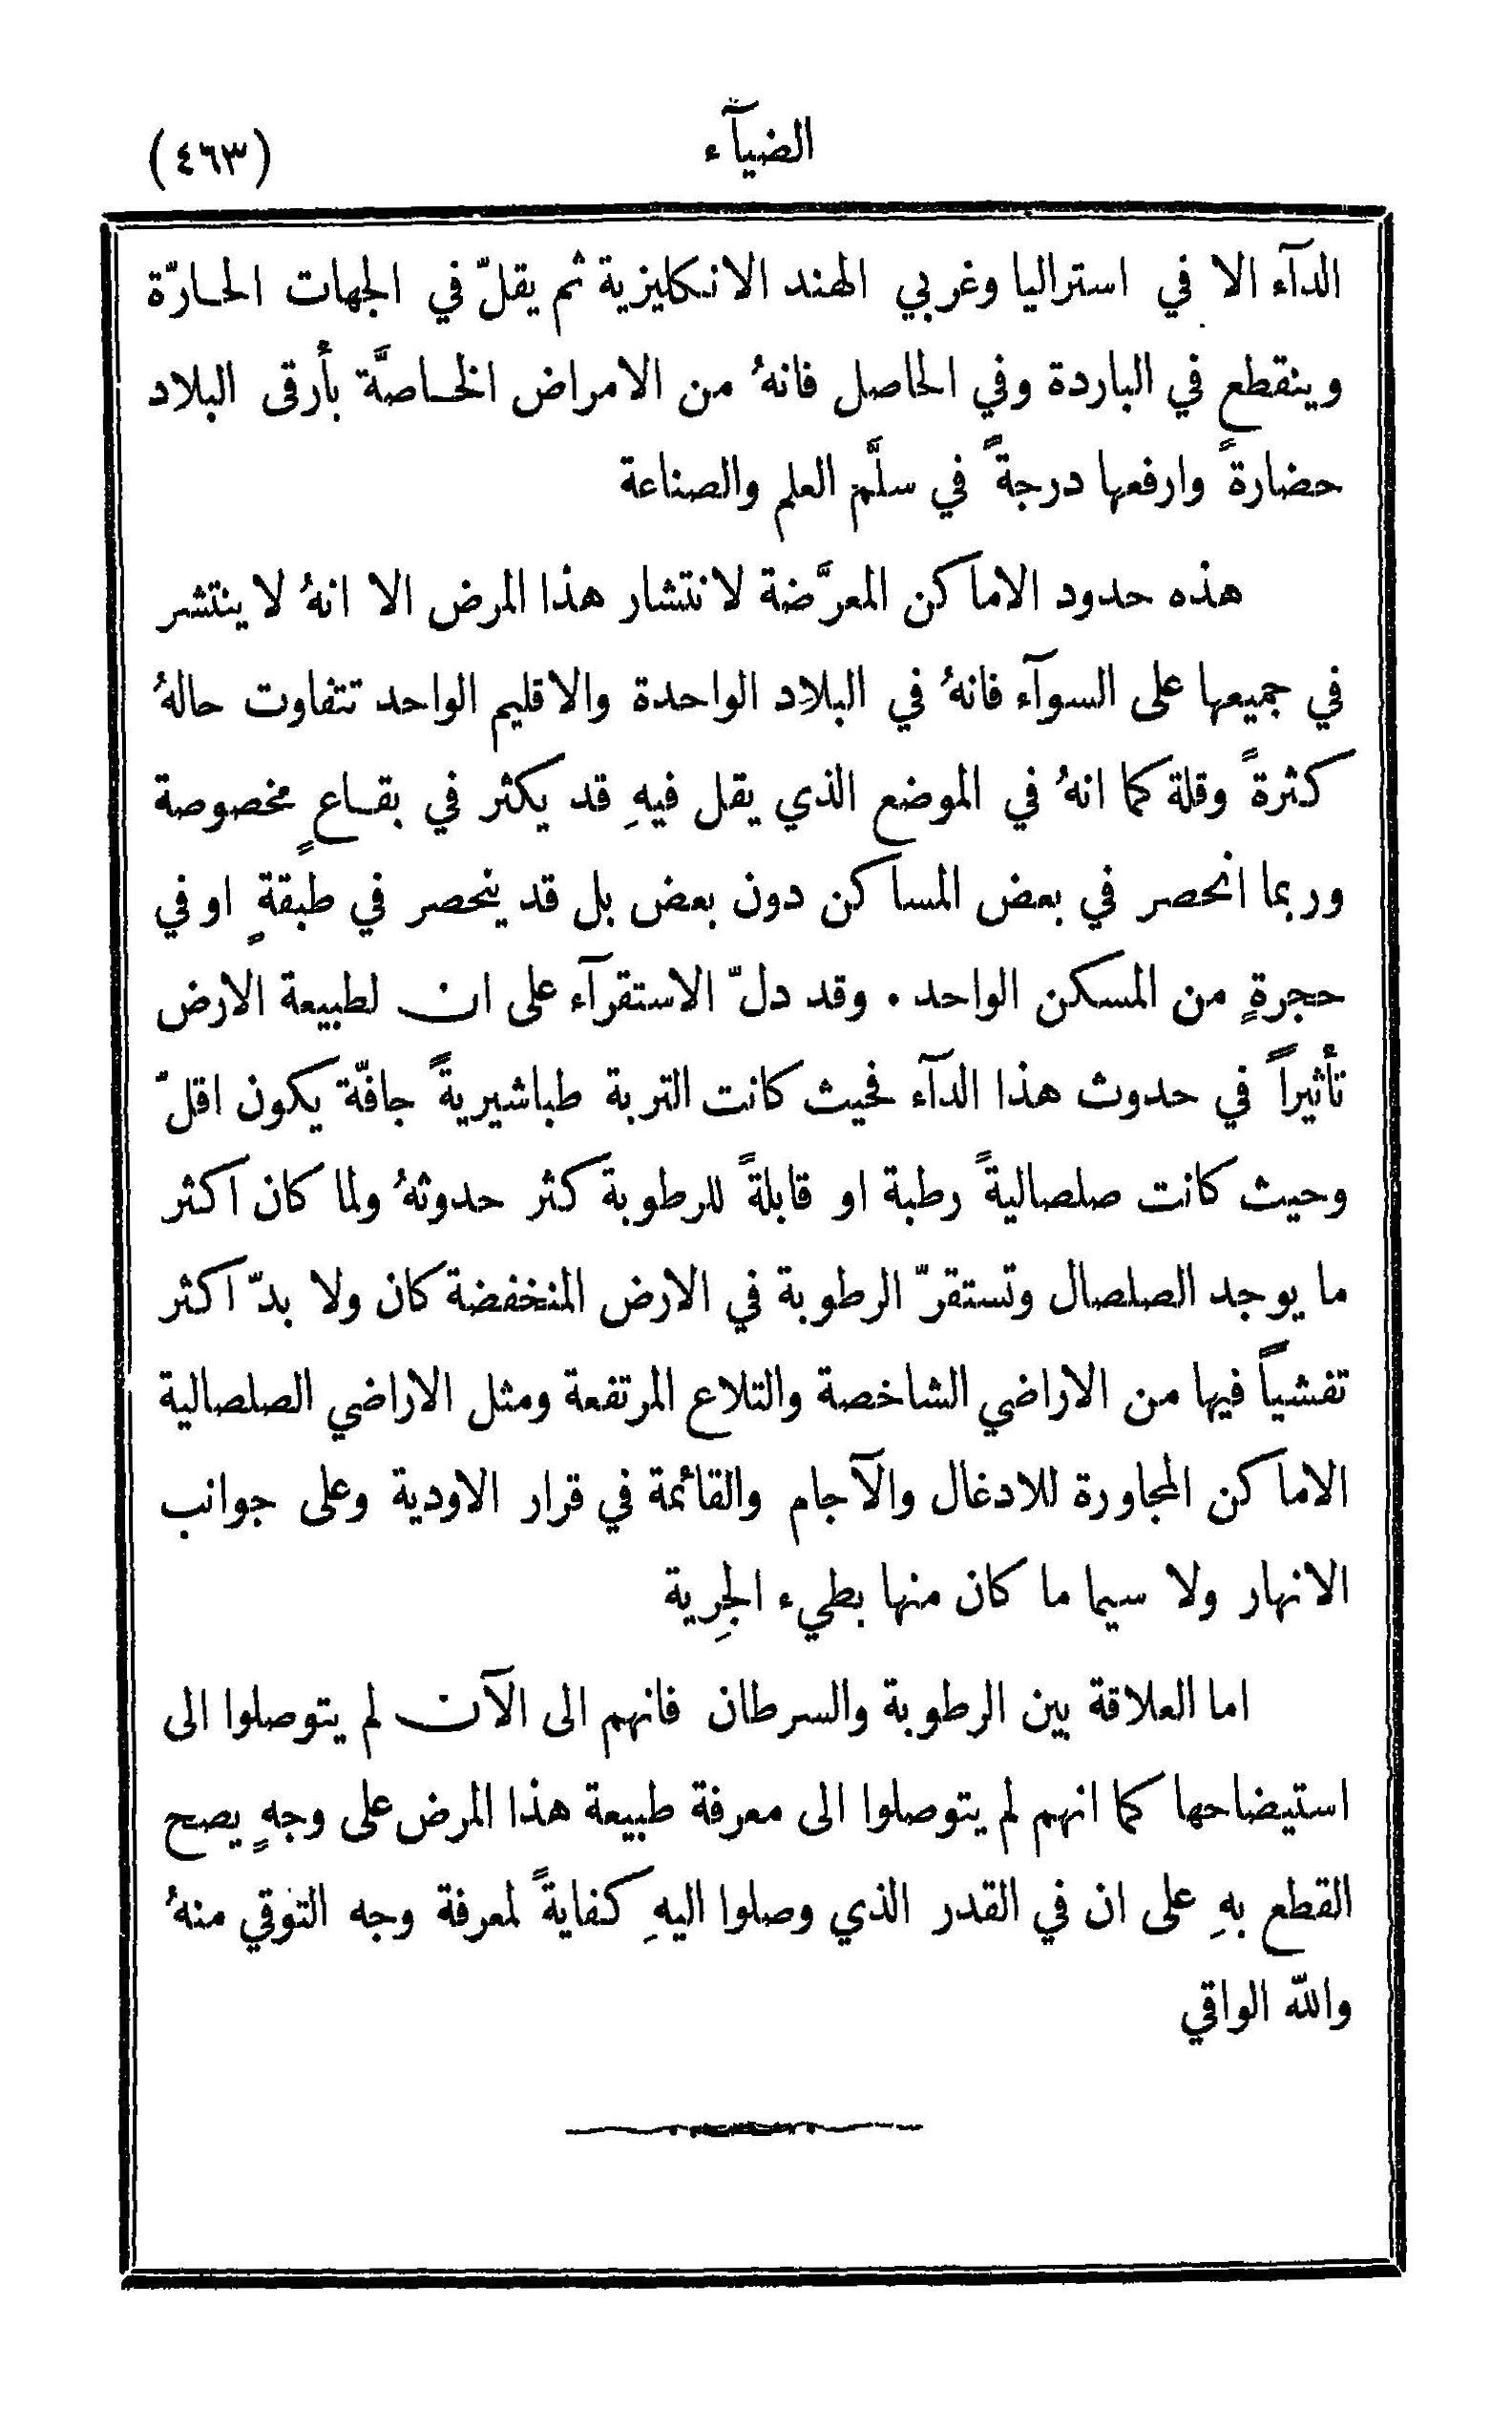 الضيآء
(٤٦٣)
الدآء الا في استراليا وغربي الهند الانكليزية ثم يقلّ في الجهات الحارّة
وينقطع في الباردة وفي الحاصل فانهُ من الامراض الخاصَّة بأرقى البلاد
حضارةً وارفعها درجةً في سلَّم العلم والصناعة
هذه حدود الاماكن المعرَّضة لانتشار هذا المرض الا انهُ لا ينتشر
في جميعها على السوآء فانهُ في البلاد الواحدة والاقليم الواحد تتفاوت حالهُ
كثرةً وقلة كما انهُ في الموضع الذي يقل فيهِ قد يكثر في بقاعٍ مخصوصة
وربما انحصر في بعض المساكن دون بعض بل قد ينحصر في طبقةٍ او في
حجرةٍ من المسكن الواحد . وقد دلّ الاستقرآء على ان لطبيعة الارض
تأثيراً في حدوث هذا الدآء فحيث كانت التربة طباشيريةً جافّة يكون اقلّ
وحيث كانت صلصاليةً رطبة او قابلةً للرطوبة كثر حدوثهُ ولما كان اكثر
ما يوجد الصلصال وتستقرّ الرطوبة في الارض المنخفضة كان ولا بدّ اكثر
تفشياً فيها من الاراضي الشاخصة والتلاع المرتفعة ومثل الاراضي الصلصالية
الاماكن المجاورة للادغال والآجام والقائمة في قرار الاودية وعلى جوانب
الانهار ولا سيما ما كان منها بطيء الجِرية
اما العلاقة بين الرطوبة والسرطان فانهم الى الآن لم يتوصلوا الى
استيضاحها كما انهم لم يتوصلوا الى معرفة طبيعة هذا المرض على وجهٍ يصح
القطع بهِ على ان في القدر الذي وصلوا اليهِ كفايةً لمعرفة وجه التوقي منهُ
والله الواقي